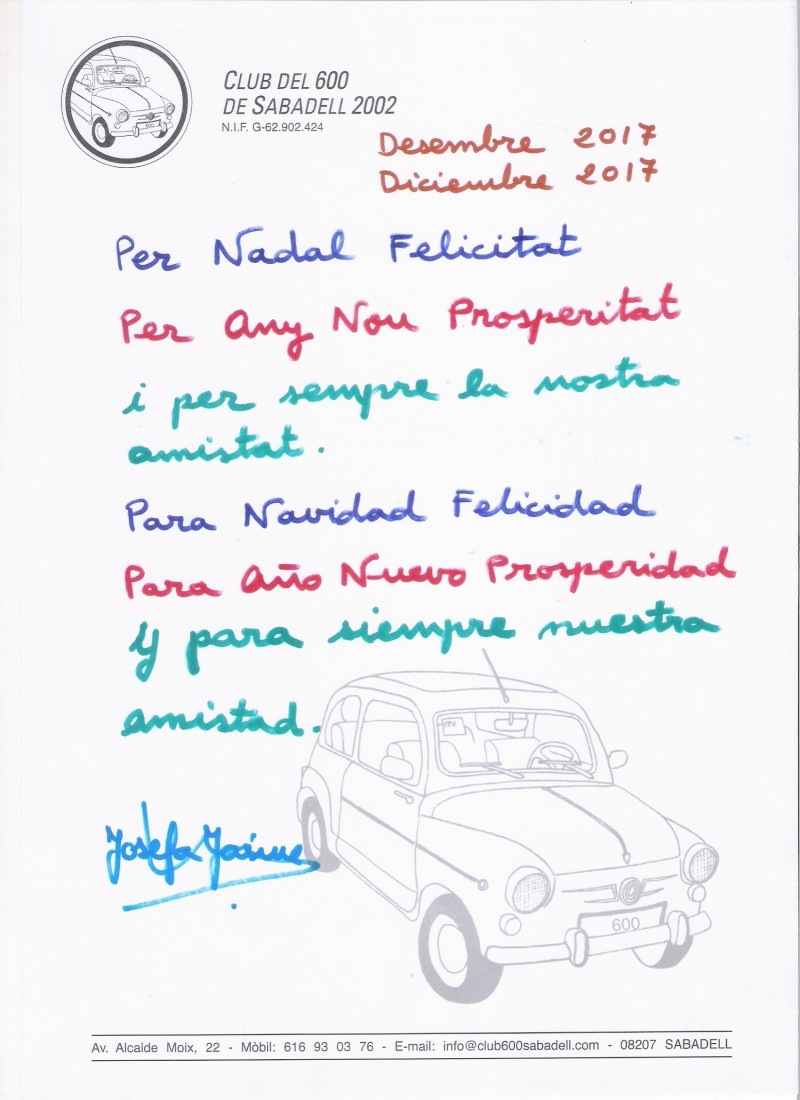 CLUB DEL 600
DE SABADELL 2002
N.I.F. G-62.902.424
Desembre 2017
Diciembre 2017
Per Nadal Felicitat
Per Any Nou Prosperitat
i per sempre la nostra
amistat.
Para Navidad Felicidad
Para Año Nuevo Prosperidad
y para siempre nuestra
amistad.
Josefa
600
Av. Alcalde Moix, 22 - Mòbil: 616 93 03 76 - E-mail: info@club600sabadell.com - 08207 SABADELL